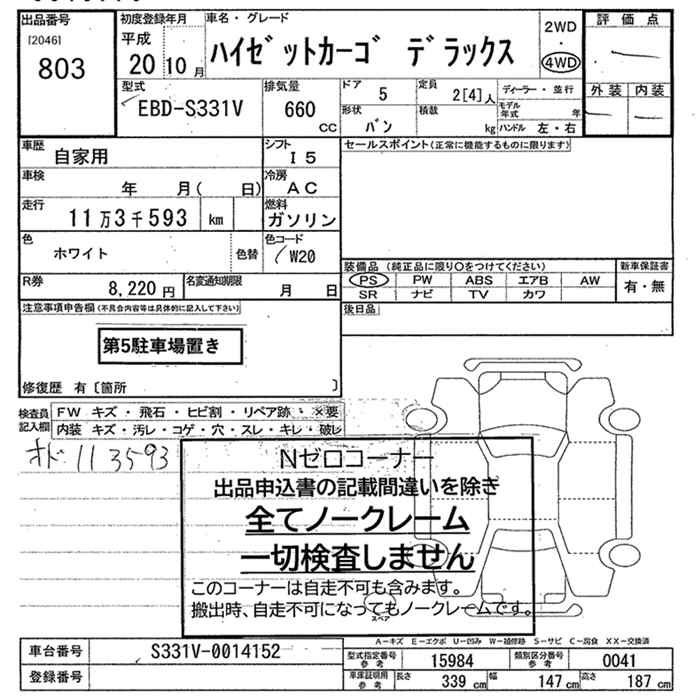 出品番号 初度登録年月 車名・グレード 2WD 評価点
[2046] 平成 ・
803 20 10月 ハイゼットカーゴ デラックス 4WD
型式 排気量 ドア 定員 ディーラー・並行 外装 内装
EBD-S331V 660 CC 5 2[4]人 モデル年式 年
形状 積載
バン kg ハンドル 左・右
車歴 シフト セールスポイント(正常に機能するものに限ります)
自家用 I5
車検 冷房
年 月( 日) AC
走行 燃料
11万3千593 km ガソリン
色 色コード
ホワイト 色替 W20
装備品 (純正品に限り○をつけてください) 新車保証書
R券 名変通知期限 PS PW ABS エアB AW 有・無
8,220円 月 日 SR ナビ TV カワ
注意事項申告欄(不具合内容等は具体的に記入して下さい) 後日品
第5駐車場置き
修復歴 有〔箇所 〕
検査員 FW キズ・飛石・ヒビ割・リペア跡・×要
記入欄 内装 キズ・汚レ・コゲ・穴・スレ・キレ・破レ
オド 113593
Nゼロコーナー
出品申込書の記載間違いを除き
全てノークレーム
一切検査しません
このコーナーは自走不可も含みます。
搬出時、自走不可になってもノークレームです。
スペア
A-キズ E-エクボ U-凹み W-補修跡 S-サビ C-腐食 XX-交換済
車台番号 S331V-0014152 型式指定番号 参考 15984 類別区分番号 参考 0041
登録番号 車庫証明用 参考 長さ 339 cm 幅 147 cm 高さ 187 cm